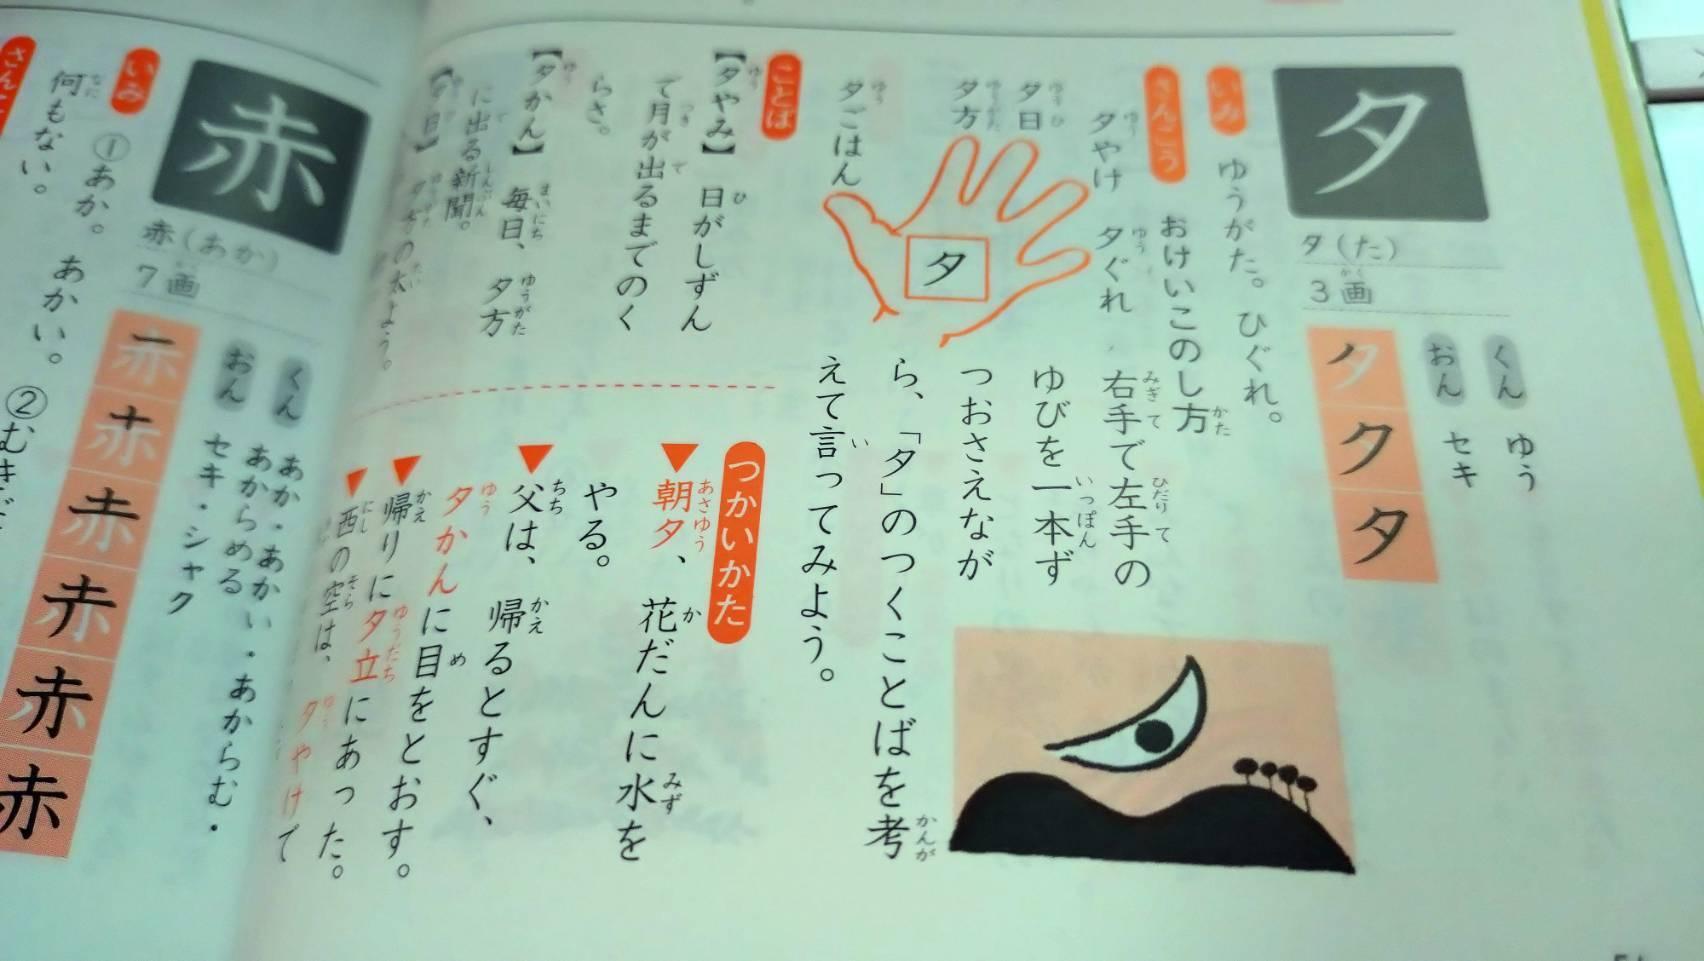 夕
夕(た)
3画
くん ゆう
おん セキ
いみ ゆうがた。ひぐれ。
さんこう おけいこのし方
右手で左手の
ゆびを一本ず
つおさえなが
ら、「夕」のつくことばを考
えて言ってみよう。
夕やけ 夕ぐれ
夕日
夕方
夕ごはん
夕
ことば
【夕やみ】 日がしずん
で月が出るまでのく
らさ。
【夕かん】 毎日、夕方
に出る新聞。
【夕日】 夕方の太よう。
つかいかた
▼朝夕、花だんに水を
やる。
▼父は、帰るとすぐ、
夕かんに目をとおす。
▼帰りに夕立にあった。
▼西の空は、夕やけで
赤
赤(あか)
7画
くん あか・あかい・あからむ・
あからめる
おん セキ・シャク
いみ ①あか。あかい。 ②むきだ
何もない。